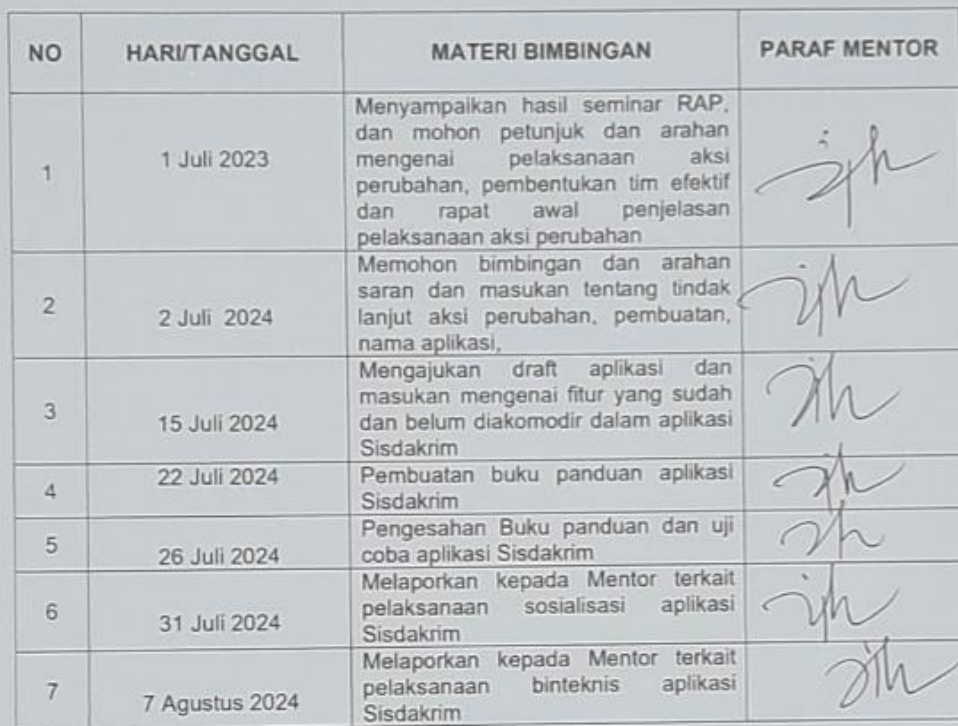 NO HARI/TANGGAL MATERI BIMBINGAN PARAF MENTOR
1
1 Juli 2023
Menyampaikan hasil seminar RAP,
dan mohon petunjuk dan arahan
mengenai pelaksanaan aksi
perubahan, pembentukan tim efektif
dan rapat awal penjelasan
pelaksanaan aksi perubahan
2
2 Juli 2024
Memohon bimbingan dan arahan
saran dan masukan tentang tindak
lanjut aksi perubahan, pembuatan,
nama aplikasi,
3
15 Juli 2024
Mengajukan draft aplikasi dan
masukan mengenai fitur yang sudah
dan belum diakomodir dalam aplikasi
Sisdakrim
4
22 Juli 2024
Pembuatan buku panduan aplikasi
Sisdakrim
5
26 Juli 2024
Pengesahan Buku panduan dan uji
coba aplikasi Sisdakrim
6
31 Juli 2024
Melaporkan kepada Mentor terkait
pelaksanaan sosialisasi aplikasi
Sisdakrim
7
7 Agustus 2024
Melaporkan kepada Mentor terkait
pelaksanaan binteknis aplikasi
Sisdakrim